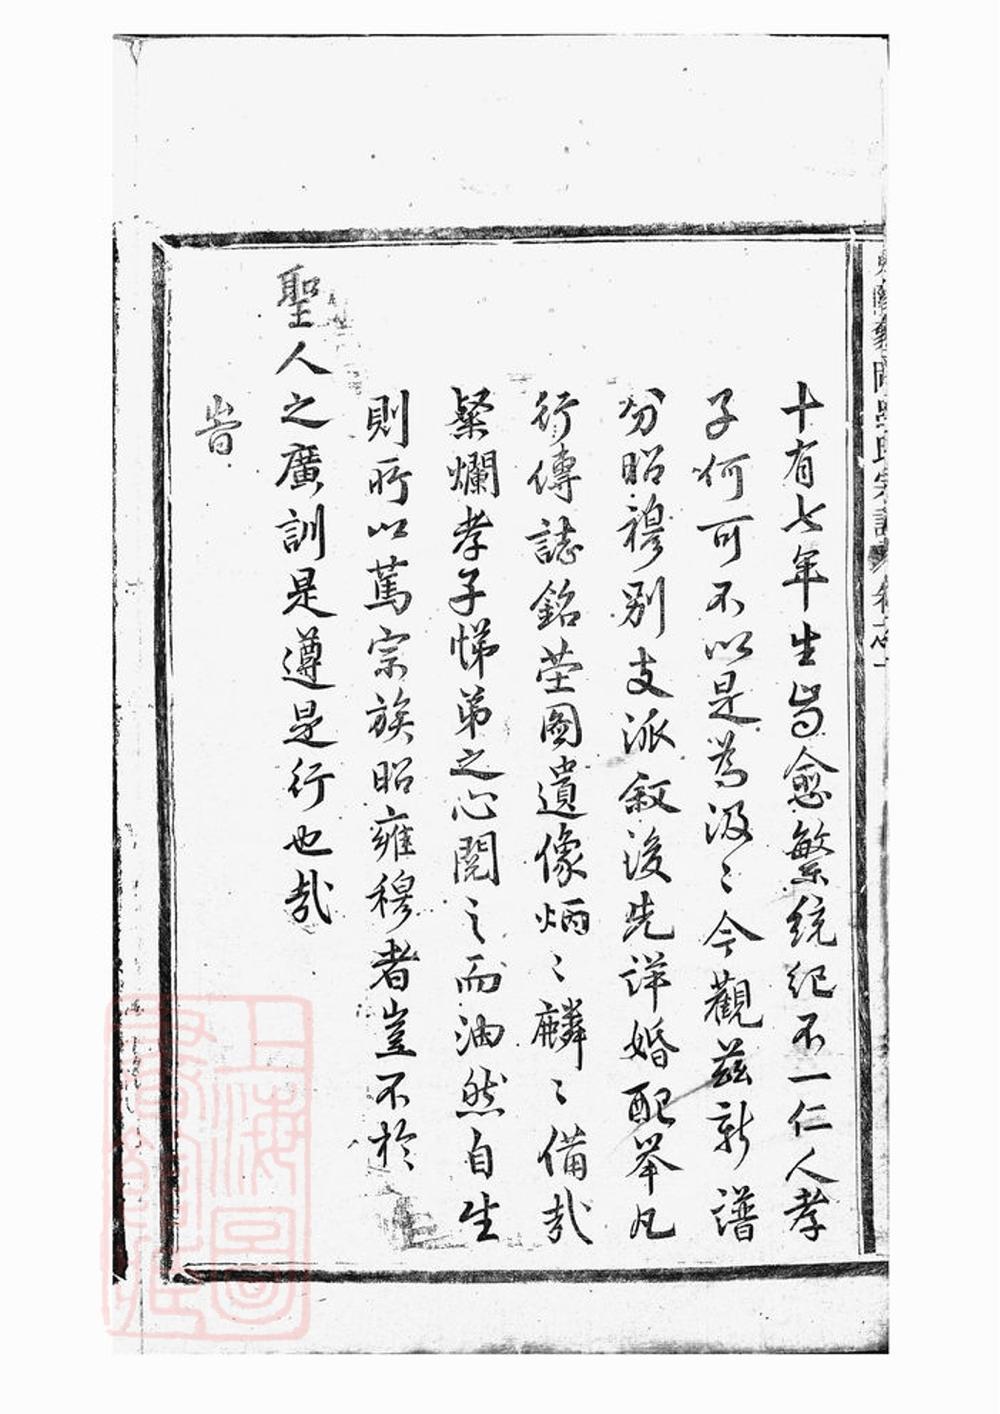 十有七年生齒愈繁統紀不一仁人孝
子何可不以是為汲〻今觀茲新譜
分昭穆别支派叙後先詳婚配举凡
行傳誌銘茔圖遺像炳〻麟〻備哉
粲爛孝子悌弟之心閱之而油然自生
則所以篤宗族昭雍穆者豈不於
聖人之廣訓是遵是行也哉
旹
氏宗譜
上海圖